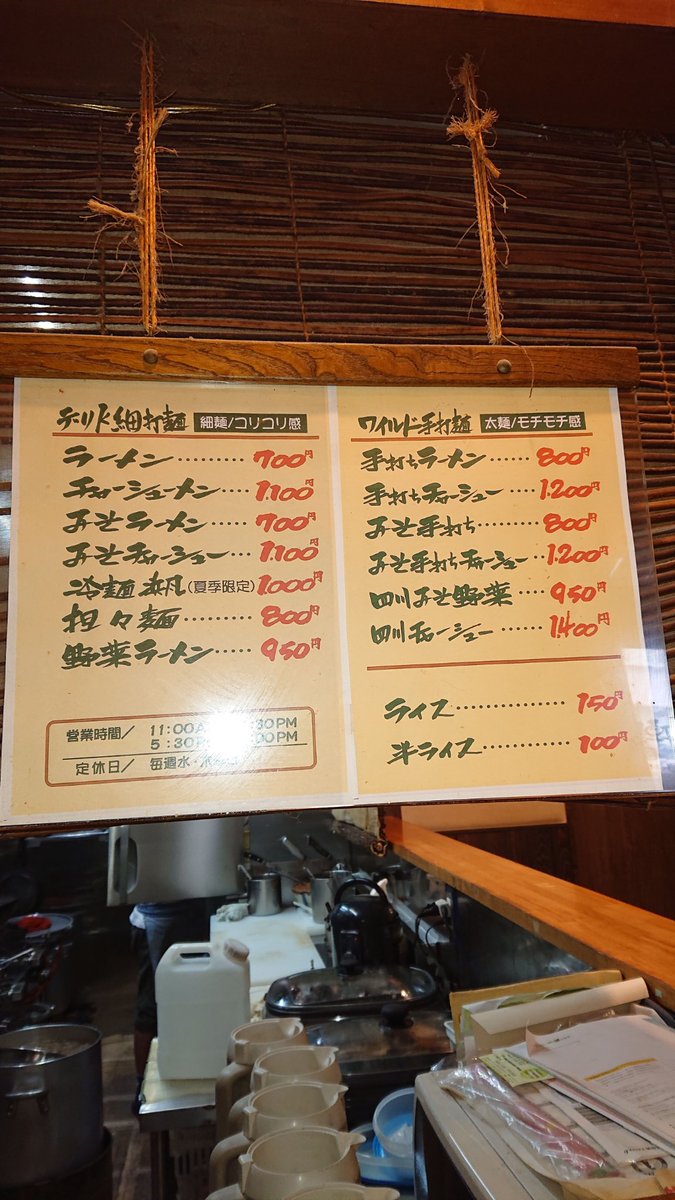 デリド細打麺 細麺/コリコリ感
ラーメン……… 700円
チャーシューメン…… 1.100円
みそラーメン…… 700円
みそチャーシュー… 1.100円
冷麺 (夏季限定) 1.000円
担々麺……… 800円
野菜ラーメン…… 950円
営業時間/ 11:00A :30PM
5:30P :00PM
定休日/ 毎週水・
ワイルド手打麺 太麺/モチモチ感
手打ちラーメン…… 800円
手打ちチャーシュー… 1.200円
みそ手打ち……… 800円
みそ手打ちチャーシュー… 1.200円
四川みそ野菜…… 950円
四川チャーシュー…… 1.400円
ライス……………… 150円
半ライス…………… 100円